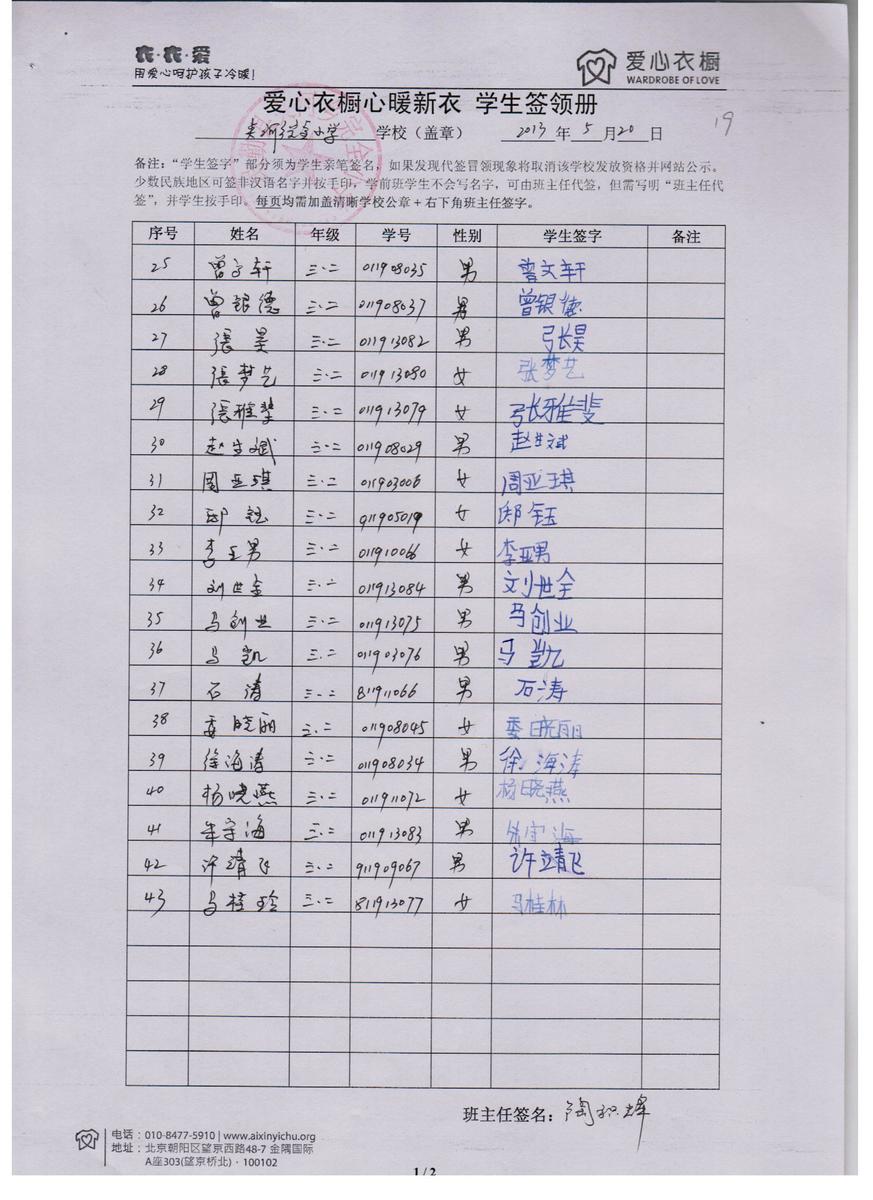 衣·衣·爱
用爱心呵护孩子冷暖!
爱心衣橱
WARDROBE OF LOVE
爱心衣橱心暖新衣 学生签领册
19
小学 学校（盖章） 2013 年 5 月 20 日
备注：“学生签字”部分须为学生亲笔签名，如果发现代签冒领现象将取消该学校发放资格并网站公示。
少数民族地区可签非汉语名字并按手印，学前班学生不会写名字，可由班主任代签，但需写明“班主任代
签”，并学生按手印。每页均需加盖清晰学校公章＋右下角班主任签字。
序号 姓名 年级 学号 性别 学生签字 备注
25 曾文轩 三.二 011908035 男 曾文轩
26 曾银德 三.二 011908037 男 曾银德
27 張昊 三.二 011913082 男 张昊
28 張梦艺 三.二 011913080 女 张梦艺
29 張雅斐 三.二 011913079 女 张雅斐
30 赵生斌 三.二 011908029 男 赵生斌
31 周亚琪 三.二 011903006 女 周亚琪
32 邸钰 三.二 911905019 女 邸钰
33 李亚男 三.二 011910066 女 李亚男
34 刘世全 三.二 011913084 男 刘世全
35 马创业 三.二 011913075 男 马创业
36 马凯 三.二 011903076 男 马凯
37 石涛 三.二 811911066 男 石涛
38 委晓丽 三.二 011908045 女 委晓丽
39 徐海涛 三.二 011908034 男 徐海涛
40 杨晓燕 三.二 011911072 女 杨晓燕
41 朱宇海 三.二 011913083 男 朱宇海
42 许靖飞 三.二 911909067 男 许靖飞
43 马桂玲 三.二 811913077 女 马桂林
班主任签名：陶积辉
电话：010-8477-5910 | www.aixinyichu.org
地址：北京朝阳区望京西路48-7 金隅国际
A座303(望京桥北)·100102
1 / 2